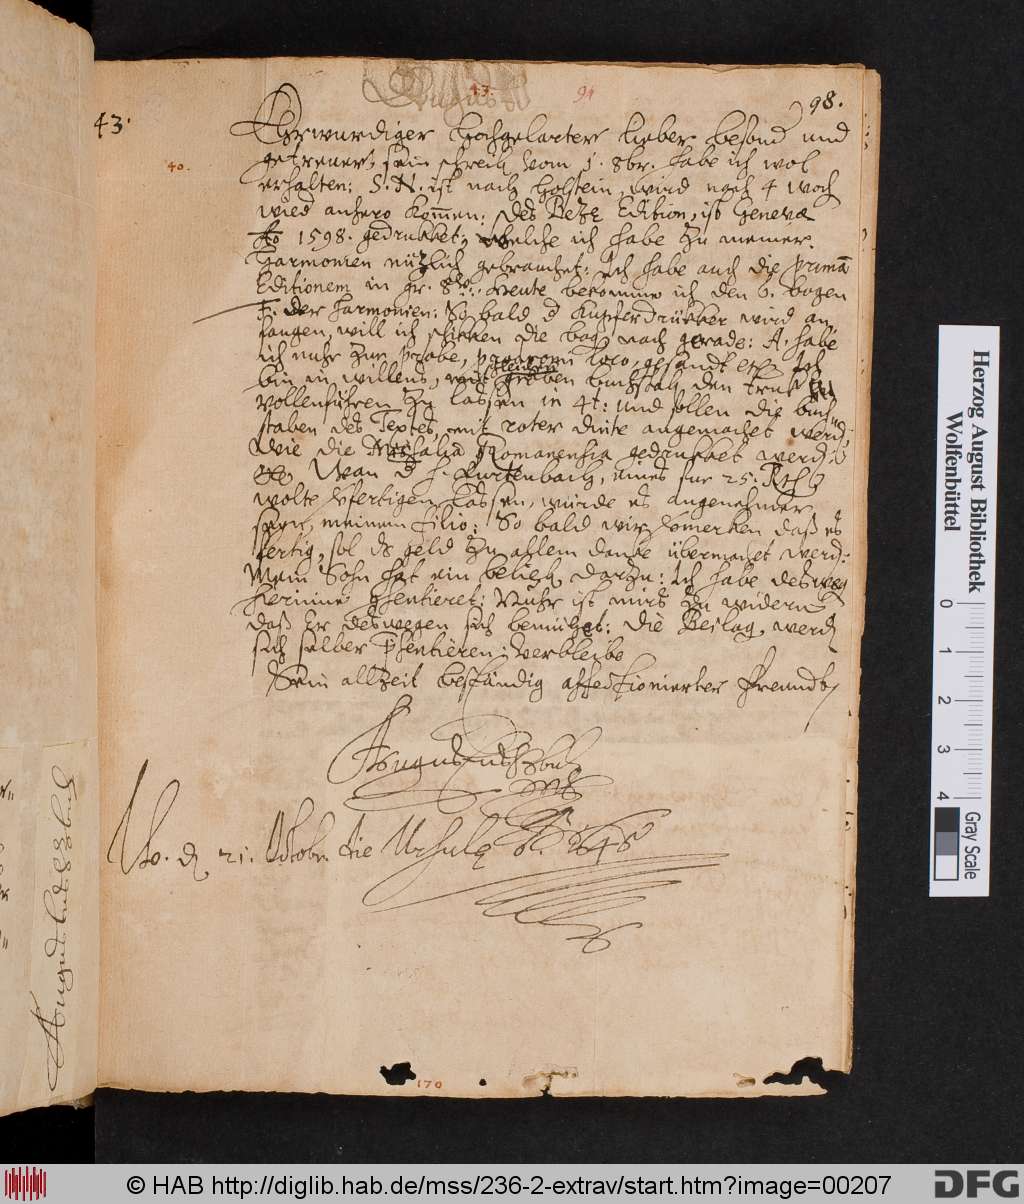 43.
94
98.
43.
40.
Ehrwurdiger Hochgelarter lieber besond und
getreuer, sein schreib vom 1. 8br. habe ich wol
erhalten: S. N. ist nach Holstein, wird nach 4 woch
wied anhero kommen: des Bezæ Edition, ist Genevæ
Ao 1598. gedrukket; welche ich habe zu meiner
Harmonien nüzlich gebrauchet: Ich habe auch die primā
Editionem in gr. 8vo. Heute bekomme ich den 6. bogen
F. der Harmonien: So bald d Kupferdrükker wird an
langen, will ich schikken die bog nach gerade: A. habe
ich nuhr zur probe, loco, gesandt etc Ich
bin in willens, mit buchstab, den truk
vollenführen zu lassen in 4t: und sollen die buch
staben des Textes mit roter dinte angemachet werdn,
wie die Missalia Romanensia gedrukket werdn:
Wan d H. Furtenbach, eines fur 25. Rth
wolte vfertigen lassen, würde es angenehmer
seyn, meinem filio: So bald wir vomerken daß es
fertig, sol ds geld zu allem danke übermachet werdn:
Mein Sohn hat ein belieb darzu: Ich habe desweg
pſentieret: Nuhr ist mirs zu widern
daß Er deswegen sich bemühet: die Beilag, werdn
sich selber pſentieren; Verbleibe
Sein allzeit beständig affectionierter Freund
Augustus HzBuL
Wo. d 21. Octobr. die Ursulæ 1648
August. hzbul
170
© HAB http://diglib.hab.de/mss/236-2-extrav/start.htm?image=00207
DFG
Herzog August Bibliothek
Wolfenbüttel
0 1 2 3 4
Gray Scale